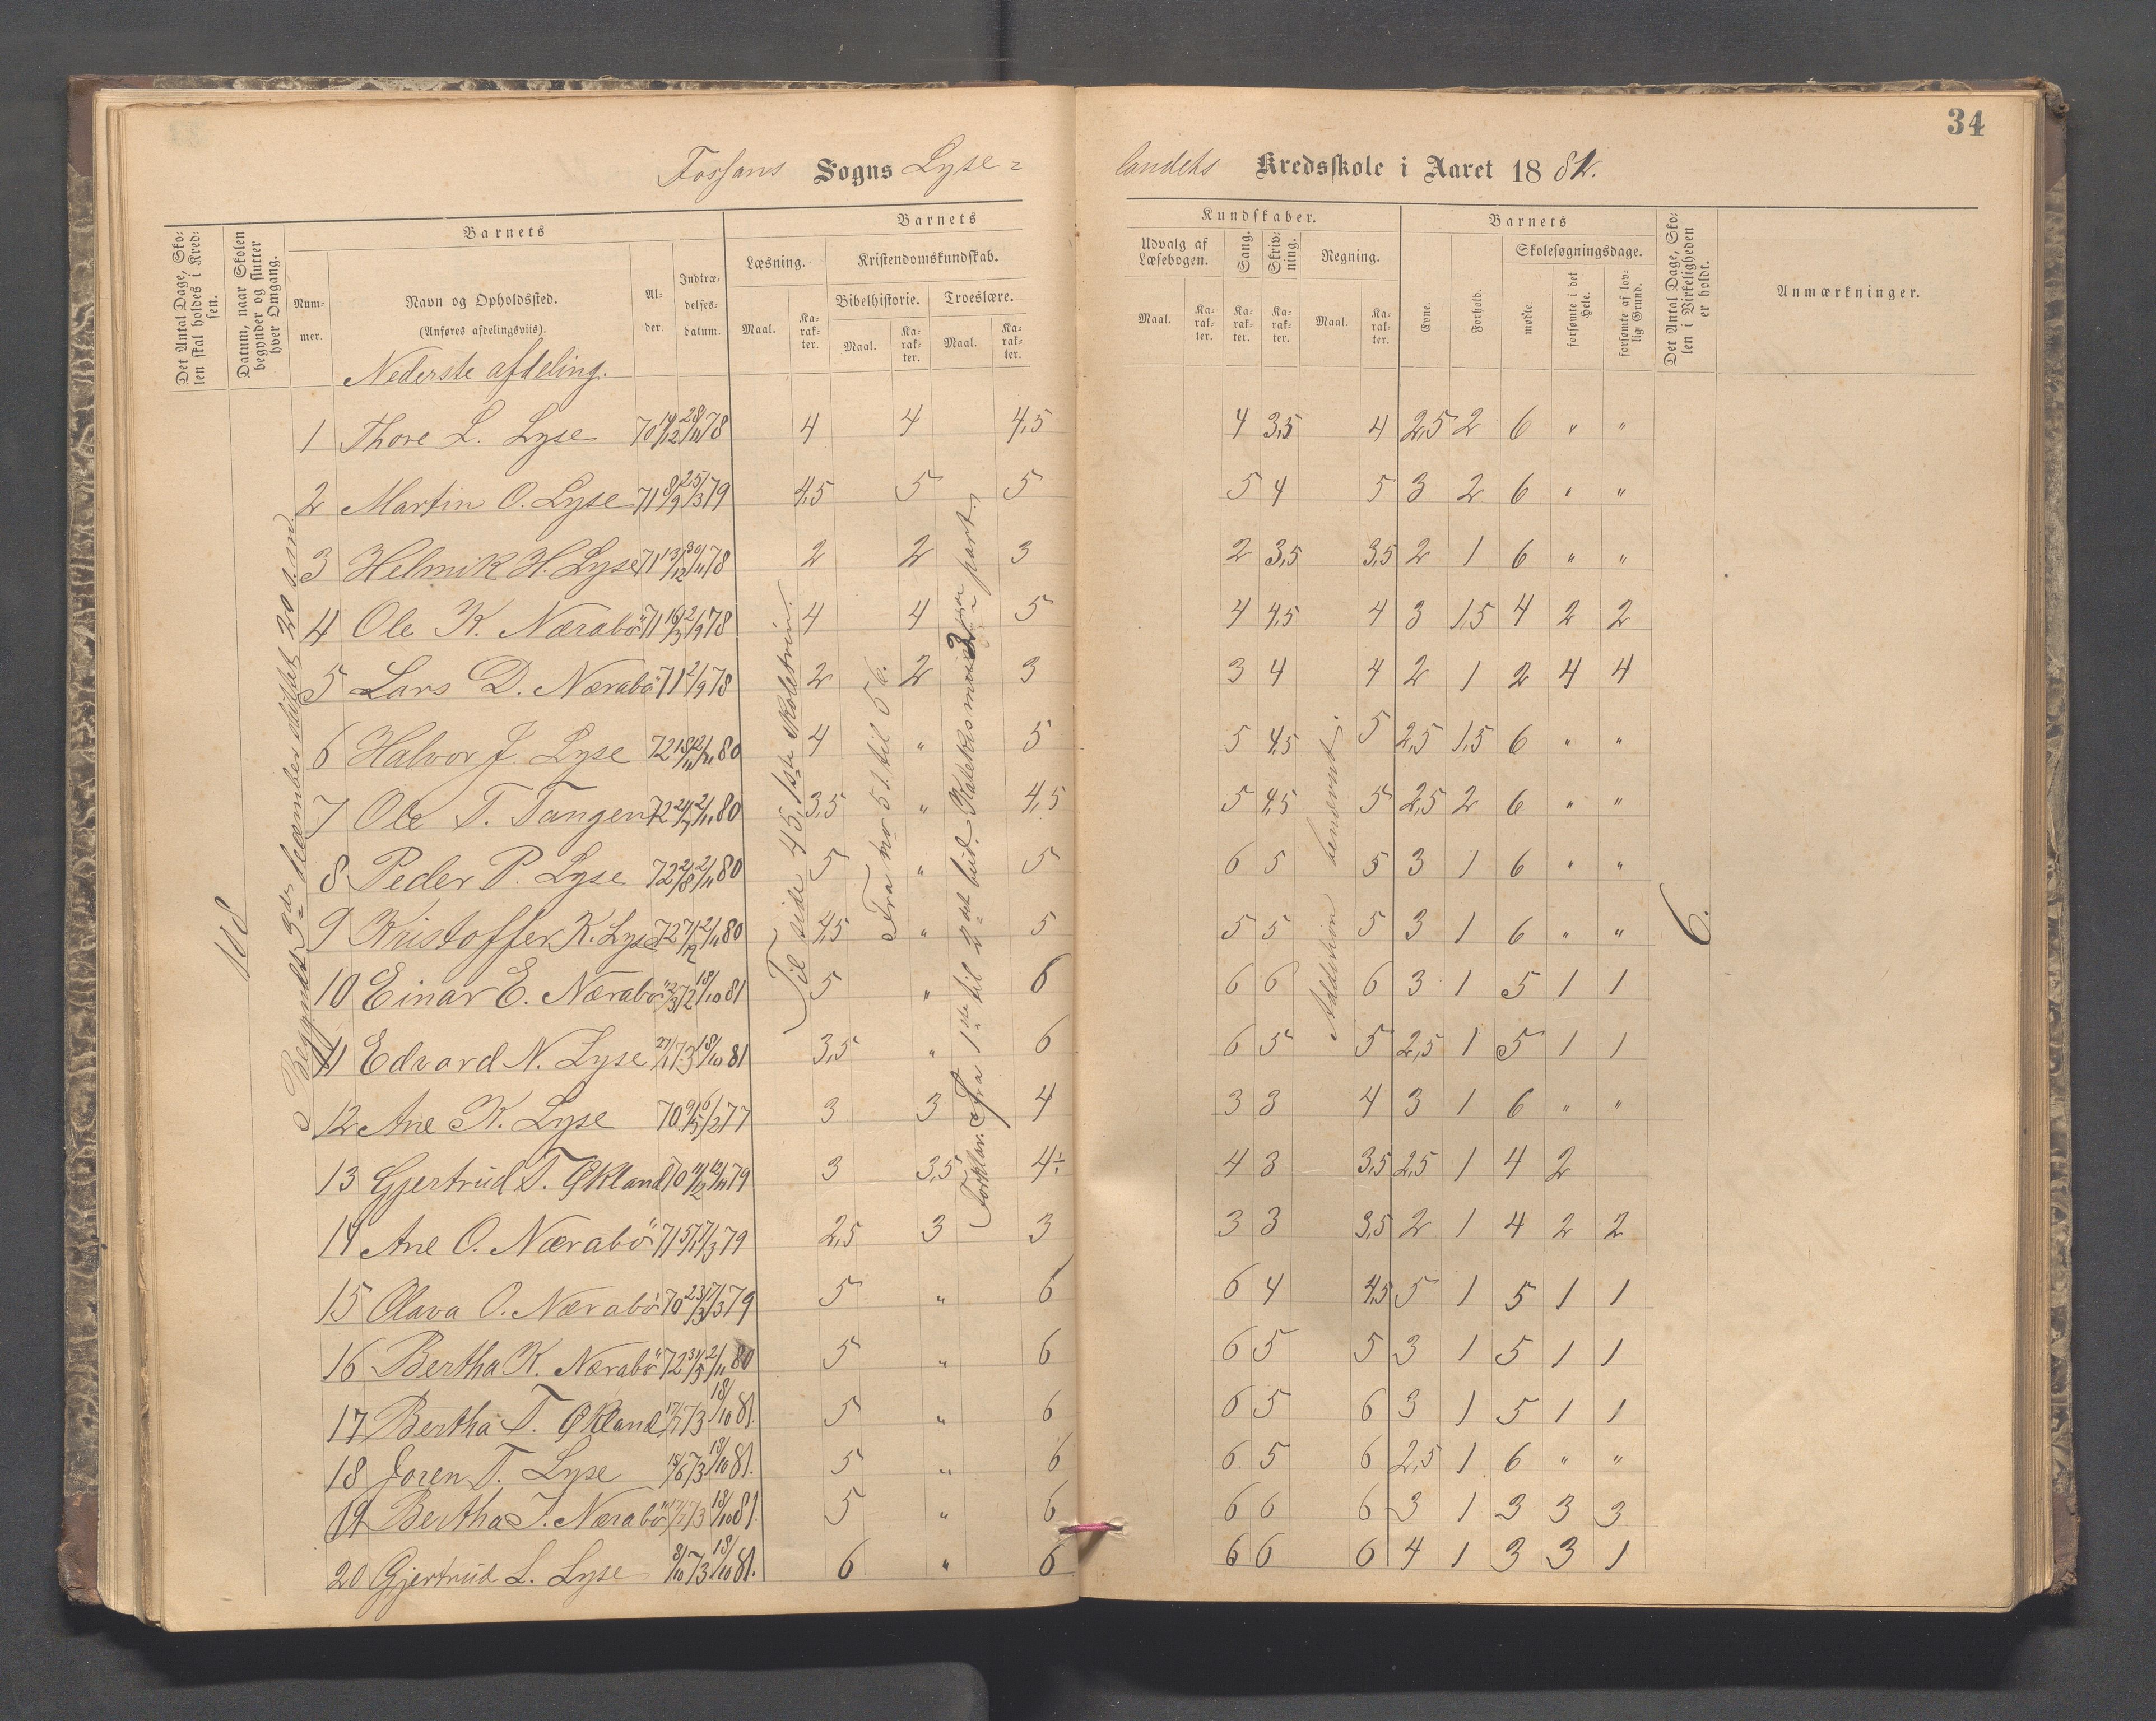 34
Fossans Sogns Lyse=
landets Kredsskole i Aaret 1882.
Det Antal Dage, Skolen skal holdes i Kredsen.
Datum, naar Skolen begynder og slutter hver Omgang.
Barnets
Nummer.
Navn og Opholdssted.
(Anføres afdelingsviis).
Alder.
Indtrædelsesdatum.
Barnets
Læsning.
Maal.
Karakter.
Kristendomskundskab.
Bibelhistorie.
Maal.
Karakter.
Troeslære.
Maal.
Karakter.
Kundskaber.
Udvalg af Læsebogen.
Maal.
Karakter.
Sang.
Karakter.
Skrivning.
Karakter.
Regning.
Maal.
Karakter.
Barnets
Evne.
Forhold.
Skolesøgningsdage.
mødte.
forsømte i det Hele.
forsømte af lovlig Grund.
Det Antal Dage, Skolen i Virkeligheden er holdt.
Anmærkninger.
Nederste afdeling.
108
Begyndt 3die december sluttet 20 s.m.
Til side 45, 1ste skoletrin.
Fra no 51 til 56.
Forklar. Fra 1ste til 2det bud.
Addition benævnt.
6.
1 Thore L. Lyse 70 14/12 28/11 78 4 4 4,5 4 3,5 4 2,5 2 6 " "
2 Martin O. Lyse 71 8/9 25/3 79 4,5 5 5 5 4 5 3 2 6 " "
3 Helmik H. Lyse 71 13/12 30/11 78 2 2 3 2 3,5 3,5 2 1 6 " "
4 Ole K. Nærabö 71 16/3 2/9 78 4 4 5 4 4,5 4 3 1,5 4 2 2
5 Lars D. Nærabö 71 2/9 78 2 2 3 3 4 4 2 1 2 4 4
6 Halvor J. Lyse 72 18/11 2/11 80 4 " 5 5 4,5 5 2,5 1,5 6 " "
7 Ole T. Tangen 72 2/11 80 3,5 " 4,5 5 4,5 5 2,5 2 6 " "
8 Peder P. Lyse 72 2/8 2/11 80 5 " 5 6 5 5 3 1 6 " "
9 Kristoffer K. Lyse 72 7/12 2/11 80 4,5 " 5 5 5 5 3 1 6 " "
10 Einar E. Nærabö 2/3 72 18/10 81 5 " 6 6 6 6 3 1 5 1 1
11 Edvard N. Lyse 27/1 73 18/10 81 3,5 " 6 6 5 5 2,5 1 5 1 1
12 Ane K. Lyse 70 9/5 6/2 77 3 3 4 3 3 4 3 1 6 " "
13 Gjertrud T. Økland 70 11/12 12/11 79 3 3,5 4÷ 4 3 3,5 2,5 1 4 2
14 Ane O. Nærabö 71 5/1 7/3 79 2,5 3 3 3 3 3,5 2 1 4 2 2
15 Olava O. Nærabö 70 23/3 7/3 79 5 " 6 6 4 4,5 5 1 5 1 1
16 Bertha K. Nærabö 72 31/5 2/11 80 5 " 6 6 5 5 3 1 5 1 1
17 Bertha T. Økland 17/1 73 18/10 81. 5 " 6 6 5 6 3 1 5 1 1
18 Joren T. Lyse 15/6 73 18/10 81. 5 " 6 6 5 6 2,5 1 6 " "
19 Bertha J. Nærabö 17/7 73 18/10 81. 5 " 6 6 6 6 3 1 3 3 3
20 Gjertrud L. Lyse 8/10 73 18/10 81. 6 " 6 6 6 6 4 1 3 3 1